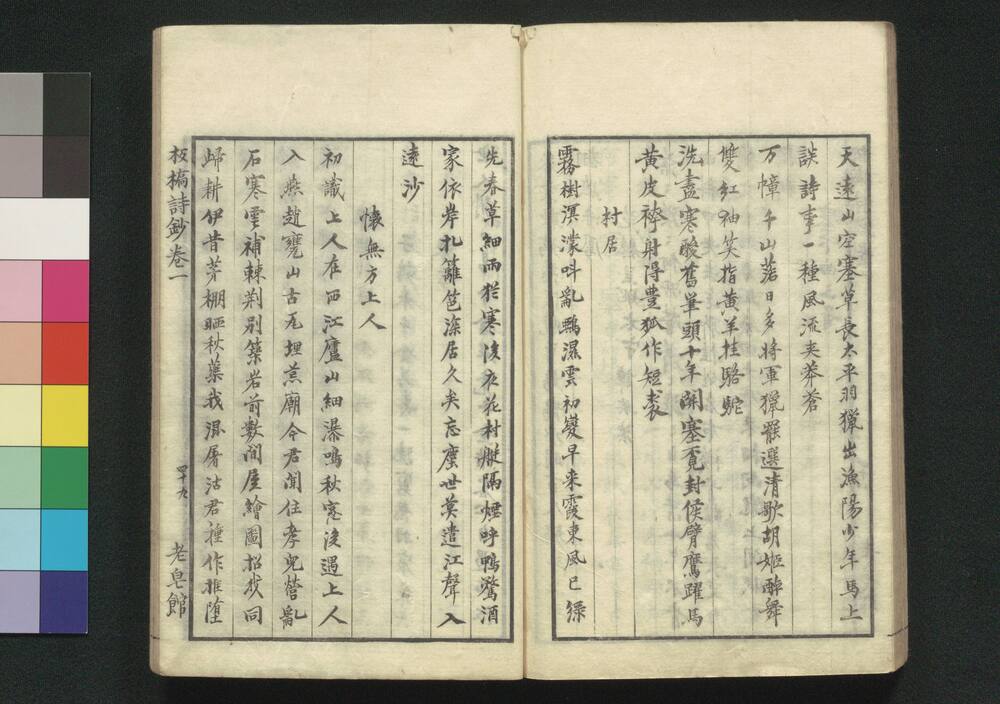 天遠山空塞草長太平羽獵出漁陽少年馬上
談詩事一種風流夾莽蒼
万幛千山落日多将軍獵罷選清歌胡姬醉舞
雙紅袖笑指黄羊挂駱駝
洗盡寒酸舊筆頭十年関塞覓封侯臂鷹躍馬
黄皮袴射得豊狐作短裘
村居
霧樹溟濛叫亂鴉濕雲初變早来霞東風已緑
先春草細雨猶寒後夜花村艇隔煙呼鴨鶩酒
家依岸扎籬笆深居久矣忘塵世莫遣江聲入
遠沙
懐無方上人
初識上人在西江廬山細瀑鳴秋窓後遇上人
入燕趙甕山古瓦埋荒廟今君聞住孝兒營亂
石寒雲補棘荆别築岩前數間屋繪圖招我同
歸耕伊昔茅棚晒秋蘂我混屠沽君種作推堕
板橋詩鈔巻一
四十九
老皂館